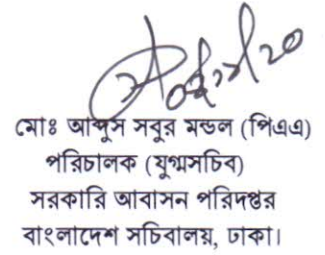 মোঃ আব্দুস সবুর মন্ডল (পিএএ)
পরিচালক (যুগ্মসচিব)
সরকারি আবাসন পরিদপ্তর
বাংলাদেশ সচিবালয়, ঢাকা।